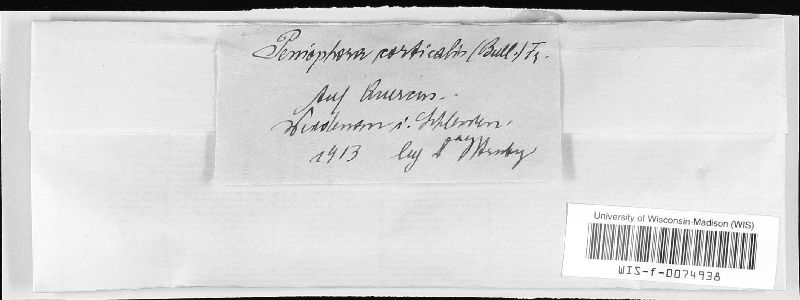 Peniophora corticalis (Bull.) Fr.
Auf Quercus.
i. Schlesien.
1913 leg
University of Wisconsin-Madison (WIS)
WIS-f-0074938